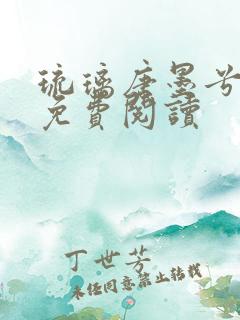 琉璃唐墨兮
免費閱讀
丁世芳
未经同意禁止转载